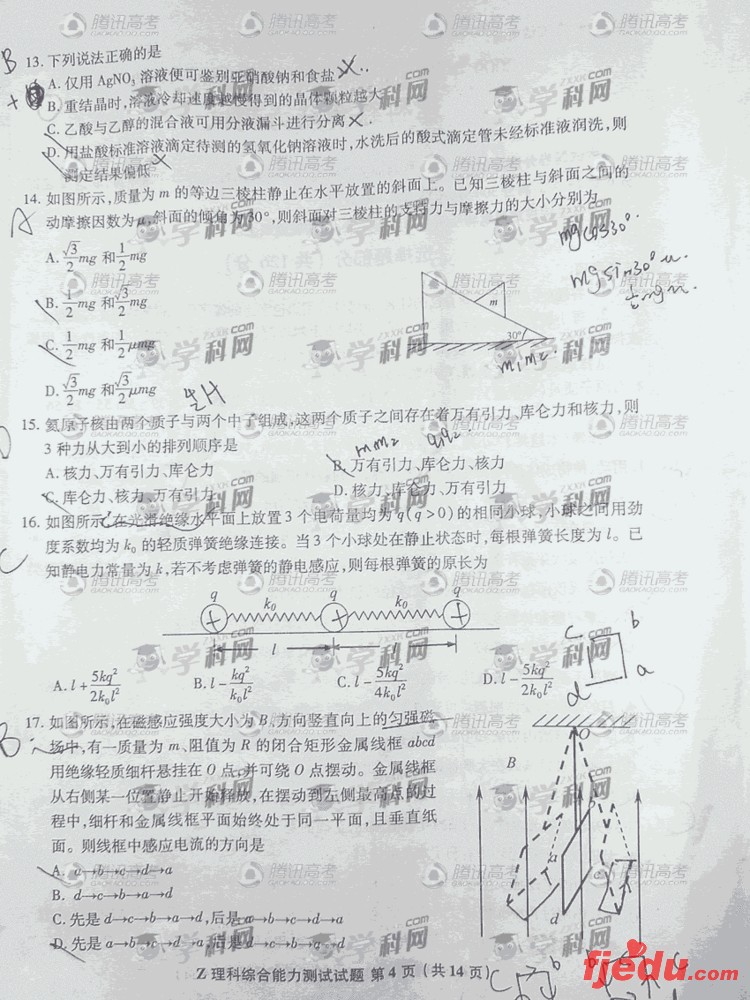 B
13. 下列说法正确的是
A. 仅用 AgNO₃ 溶液便可鉴别亚硝酸钠和食盐
B. 重结晶时,溶液冷却速度越慢得到的晶体颗粒越大
C. 乙酸与乙醇的混合液可用分液漏斗进行分离
D. 用盐酸标准溶液滴定待测的氢氧化钠溶液时,水洗后的酸式滴定管未经标准液润洗,则
测定结果偏低
A
14. 如图所示,质量为 m 的等边三棱柱静止在水平放置的斜面上。已知三棱柱与斜面之间的
动摩擦因数为 μ,斜面的倾角为 30°,则斜面对三棱柱的支持力与摩擦力的大小分别为
mgcos30°
A. √3/2 mg 和 1/2 mg
mgsin30° μ.
B. 1/2 mg 和 √3/2 mg
1/2 mg μ.
m
C. 1/2 mg 和 1/2 μmg
30°
m₁m₂
D. √3/2 mg 和 √3/2 μmg
15. 氦原子核由两个质子与两个中子组成,这两个质子之间存在着万有引力、库仑力和核力,则
3 种力从大到小的排列顺序是
m m₂
q₁q₂
A. 核力、万有引力、库仑力
B. 万有引力、库仑力、核力
C. 库仑力、核力、万有引力
D. 核力、库仑力、万有引力
C
16. 如图所示,在光滑绝缘水平面上放置 3 个电荷量均为 q(q>0)的相同小球,小球之间用劲
度系数均为 k₀ 的轻质弹簧绝缘连接。当 3 个小球处在静止状态时,每根弹簧长度为 l。已
知静电力常量为 k,若不考虑弹簧的静电感应,则每根弹簧的原长为
q k₀ q k₀ q
l l
A. l + 5kq²/2k₀l²
B. l − kq²/k₀l²
C. l − 5kq²/4k₀l²
D. l − 5kq²/2k₀l²
c b
d a
B
17. 如图所示,在磁感应强度大小为 B,方向竖直向上的匀强磁
场中,有一质量为 m、阻值为 R 的闭合矩形金属线框 abcd
用绝缘轻质细杆悬挂在 O 点,并可绕 O 点摆动。金属线框
从右侧某一位置静止开始释放,在摆动到左侧最高点的过
程中,细杆和金属线框平面始终处于同一平面,且垂直纸
面。则线框中感应电流的方向是
O
B
a
d
A. a→b→c→d→a
B. d→c→b→a→d
C. 先是 d→c→b→a→d,后是 a→b→c→d→a
D. 先是 a→b→c→d→a,后是 d→c→b→a→d
Z 理科综合能力测试试题 第 4 页(共 14 页)
腾讯高考
GAOKAO.QQ.COM
学科网
ZXXK.com
fjedu.com